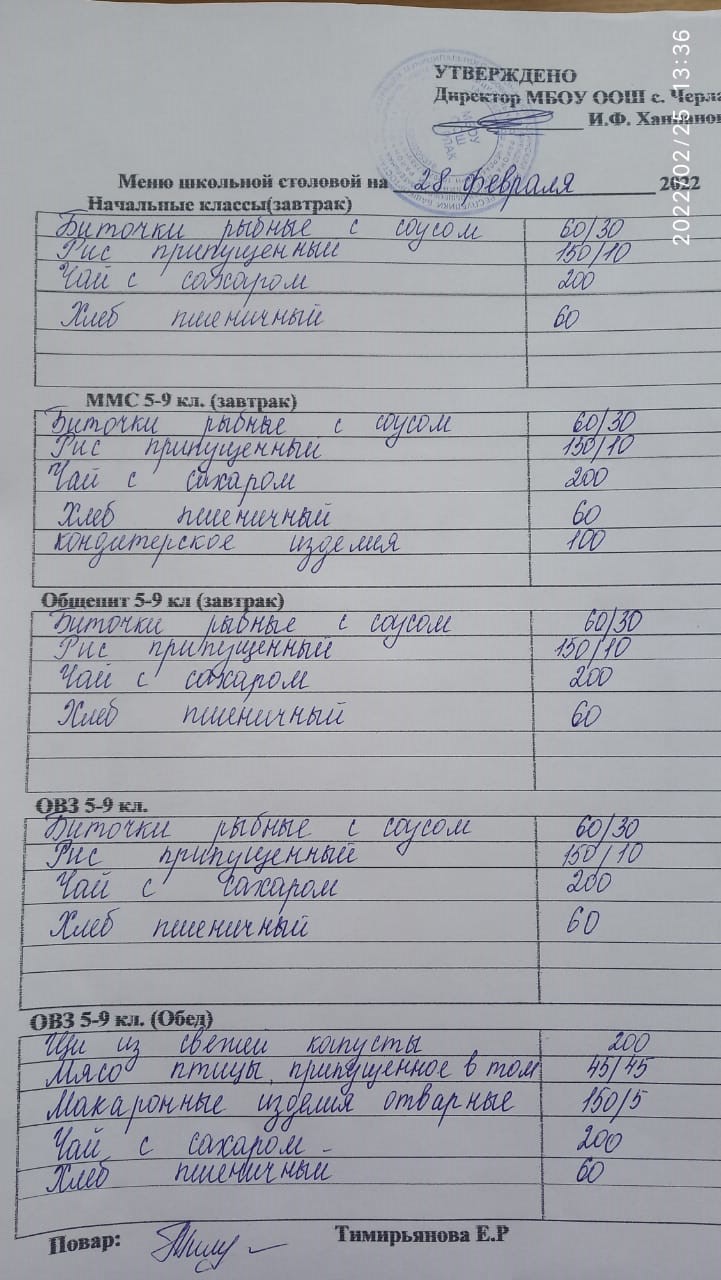 УТВЕРЖДЕНО
Директор МБОУ ООШ с. Черла
И.Ф. Ханнанов
2022/02/25 13:36
Меню школьной столовой на 28 февраля 2022
Начальные классы(завтрак)
Биточки рыбные с соусом 60/30
Рис припущенный 150/10
Чай с сахаром 200
Хлеб пшеничный 60
ММС 5-9 кл. (завтрак)
Биточки рыбные с соусом 60/30
Рис припущенный 150/10
Чай с сахаром 200
Хлеб пшеничный 60
кондитерское изделия 100
Общепит 5-9 кл (завтрак)
Биточки рыбные с соусом 60/30
Рис припущенный 150/10
Чай с сахаром 200
Хлеб пшеничный 60
ОВЗ 5-9 кл.
Биточки рыбные с соусом 60/30
Рис припущенный 150/10
Чай с сахаром 200
Хлеб пшеничный 60
ОВЗ 5-9 кл. (Обед)
Щи из свежей капусты 200
Мясо птицы, припущенное в том 45/45
Макаронные изделия отварные 150/5
Чай с сахаром 200
Хлеб пшеничный 60
Повар: Тимирьянова Е.Р